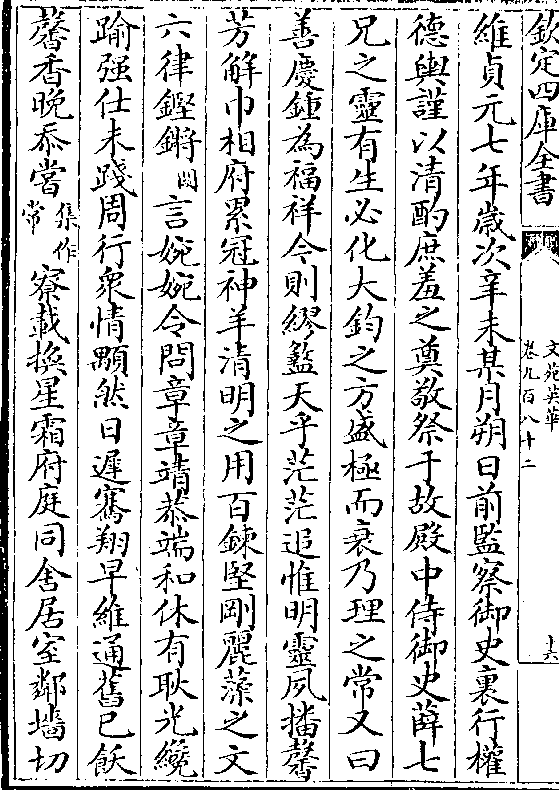 欽定四庫全書
文苑英華
卷九百八十二
十六
維貞元七年歲次辛未某月朔日前監察御史裏行權
德輿謹以清酌庶羞之奠敬祭于故殿中侍御史薛七
兄之靈有生必化大鈞之方盛極而衰乃理之常又曰
善慶鍾為福祥今則繆盭天乎茫茫追惟明靈夙播馨
芳解巾相府累冠神羊清明之用百鍊堅剛麗藻之文
六律鏗鏘閎言婉婉令問章章靖恭端和休有耿光纔
踰强仕未踐周行衆情顒然日遲騫翔早維通舊已飫
馨香晚忝嘗集作常寮載換星霜府庭同舍居室鄰墻切